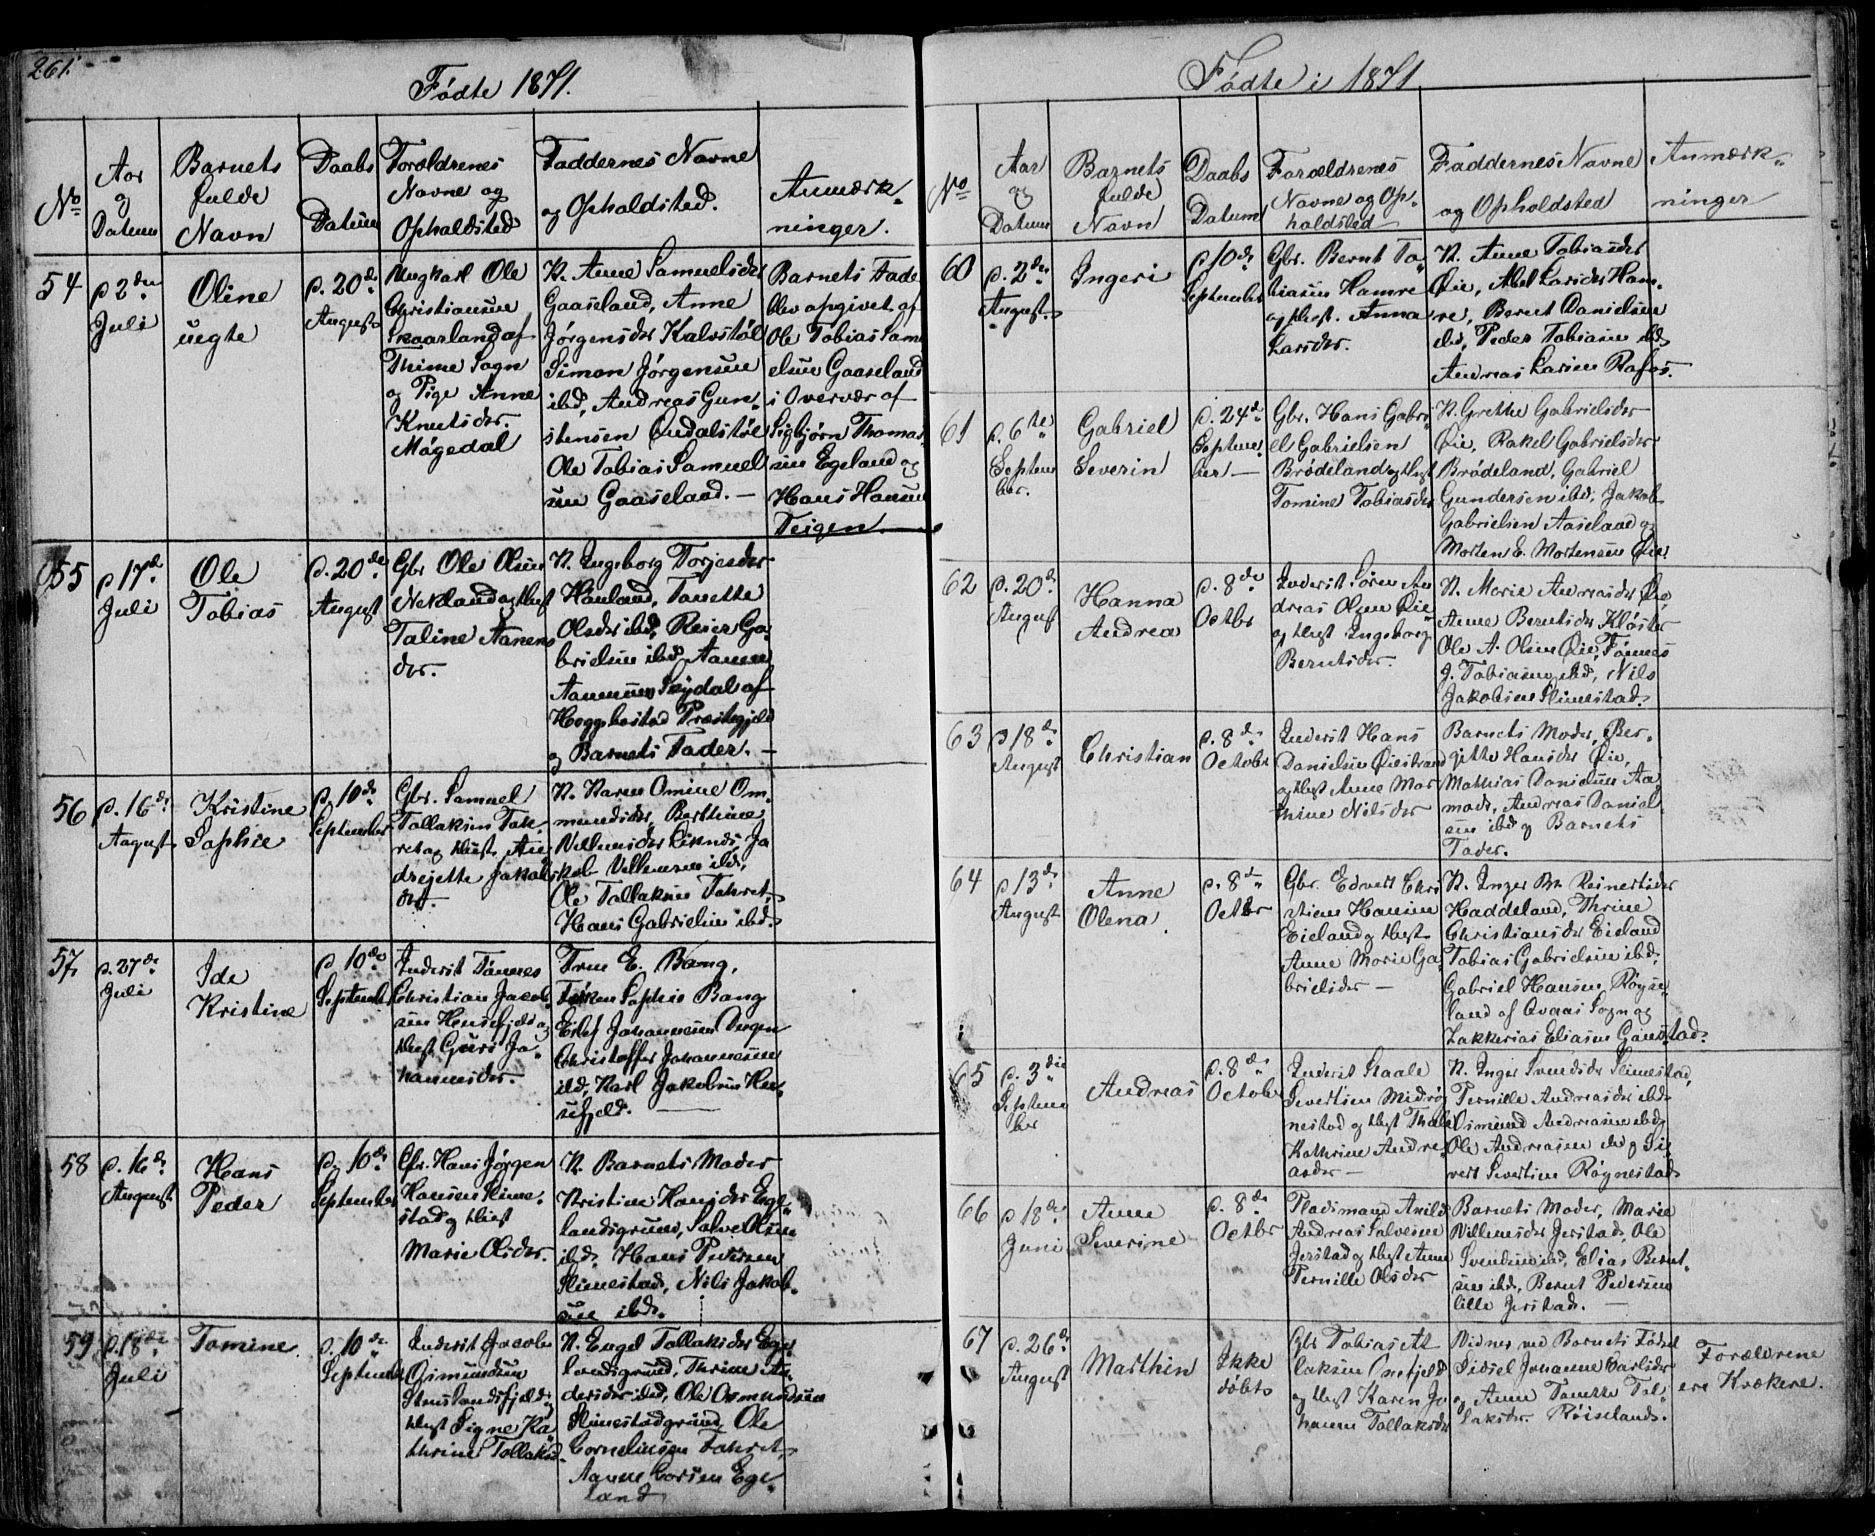 261.
Fødte 1871.
No
Aar
og
Datum
Barnets
fulde
Navn
Daabs
Datum
Forældrenes
Navne og
Opholdsted
Faddernes Navne
og Opholdsted.
Anmærk-
ninger.
54
d. 2den
Juli
Oline
uegte
d. 20de
August
Ungkarl Ole
Christiansen
Skaarland af
Thime Sogn
og Pige Anne
Knutsdr.
Møgedal
K. Anne Samuelsdr
Gaaseland, Anne
Jørgensdr Kalvstøl
Simon Jørgensen
ibd, Andreas Gun-
stensen
Ole Tobias Samuel
sen Gaaseland. —
Barnets Fader
blev opgivet af
Ole Tobias Samu
elsen Gaaseland
i Overvær af
Sigbjørn Thomas
sen Egeland og
Hans Hansen
Teigen.
55
d. 17de
Juli
Ole
Tobias
d. 20de
August
Gbr Ole Olsen
Nekland og Hust
Taline Aanens
dr.
K. Ingeborg Torjesdr
Hauland, Tonette
Olsdr ibd, Reier Ga
brielsen ibd, Aanen
Aanensen Seydal af
Heggebostad Præstegjeld
og Barnets Fader. —
56
d. 16de
August
Kristine
Sophie
d. 10de
September
Gbr. Samuel
Tallaksen Fah-
ret og Hust. An
drejette Jakobs
dr.
K. Karen Omine Om-
mundsdr, Berthine
Villumsdr Liknes, Ja
kob Villumsen ibd,
Ole Tallaksen Fahret,
Hans Gabrielsen ibd.
57
d. 27de
Juli
Ide
Kristine
d. 10de
September
Inderst Tønnes
Christian Jacob-
sen Heusefjeld og
Hust Guri Jo-
hannesdr.
Frue E. Bang,
Frøken Sophie Bang
Eilef Johannesen
Christoffer Johannesen
ibd, Karl Jakobsen Heu-
sefjeld. —
58
d. 16de
August
Hans
Peder
d. 10de
September
Gbr. Hans Jørgen
Hansen Slime-
stad og Hust
Marie Olsdr.
K. Barnets Moder
Kristine Hansdr Ege-
landsgrund, Salve Olsen
ibd. Hans Pedersen
Slimestad, Nils Jakob-
sen ibd.
59
d. 18de
Juli
Tomine.
d. 10de
September
Inderst Jacob
Osmundsen
Stuslandsfjeld og
Hust Signe Ka
thrine Tallaksd.
K. Engel Tallaksdr Ege
landsgrund, Thrine An-
dersdr ibd, Ole Osmundsen
Slimestadgrund Ole
Corneliusen Fahret,
Aanen Larsen Ege-
land
Fødte i 1871
No
Aar
og
Datum
Barnets
fulde
Navn
Daabs
Datum
Forældrenes
Navne og Op-
holdsted
Faddernes Navne
og Opholdsted
Anmærk-
ninger
60
d. 2den
August.
Ingeri
d. 10de
September
Gbr. Bernt To
biasen Hamre
og Hust. Anna
Larsdr.
K. Anne Tobiasdr
Øie, Abel Larsdr Ham-
re, Bernt Danielsen
ibd, Peder Tobiasen ibd,
Andreas Larsen Rafos.
61
d. 6te
Septem
ber.
Gabriel
Severin
d. 24de
Septem
ber —
Gbr. Hans Gabri
el Gabrielsen
Brødeland og Hust
Tomine Tobiasdr
K. Grethe Gabrielsdr
Øie, Rakel Gabrielsdr
Brødeland, Gabriel
Gundersen ibd, Jakob
Gabrielsen Aaseland og
Morten E. Mortensen Øie.
62
d. 20de
August
Hanna
Andrea
d. 8de
Octbr
Inderst Søren An
dreas Olsen Øie
og Hust Ingeborg
Berntsdr.
K. Marie Andreasdr Øie,
Anne Berntsdr Kloster
Ole A. Olsen Øie, Tønnes
J. Tobiasen ibd, Nils
Jakobsen Slimestad.
63
d 18de
August
Christian
d. 8de
October
Inderst Hans
Danielsen Øiestrand
og Hust Anne Mar
thine Nilsdr
Barnets Moder, Ber-
gitte Hansdr Øie,
Mathias Danielsen Aa
mode, Andreas Daniel
sen ibd og Barnets
Fader.
64
d 13de
August
Anne
Olena.
d. 8de
Octbr
Gbr. Edvert Chri
stian Hansen
Eieland og Hust
Anne Marie Ga
brielsdr —
K. Inger Br. Reinertsdr
Haddeland, Thrine
Christiansdr Eieland
Tobias Gabrielsen ibd,
Gabriel Hansen Røyse
land af Qvaas Sogn og
Zakkerias Eliasen Gauestad.
65
d. 3die
Septem
ber
Andreas
d. 8de
October
Inderst Staale
Sivertsen Midrøg
nestad og Hust Thale
Kathrine Andre
asdr —
K. Inger Svendsdr Slimestad,
Pernille Andreasdr ibd
Osmund Andreasen ibd,
Ole Andreasen ibd og Si-
vert Sivertsen Røgnestad
66
d 18de
Juni
Anne
Severine
d. 8de
Octbr
Pladsmand Arild
Andreas Salvesen
Jerstad og Hust Anne
Pernille Olsdr
Barnets Moder, Marie
Villumsdr Jerstad, Ole
Svendsen ibd, Elias Bernt-
sen ibd, Bernt Pedersen
lille Jerstad. —
67
d. 26de
August
Marthin
Ikke
døbt
Gbr Tobias At
laksen
og Hust Karen Jo
hanne Tallaksdr
Vidner ved Barnets Fødsel
Sidsel Johanne Carlsdr
og Anne Tonette Tal-
laksdr. Røiseland.
Forældrene
ere Kvækere.